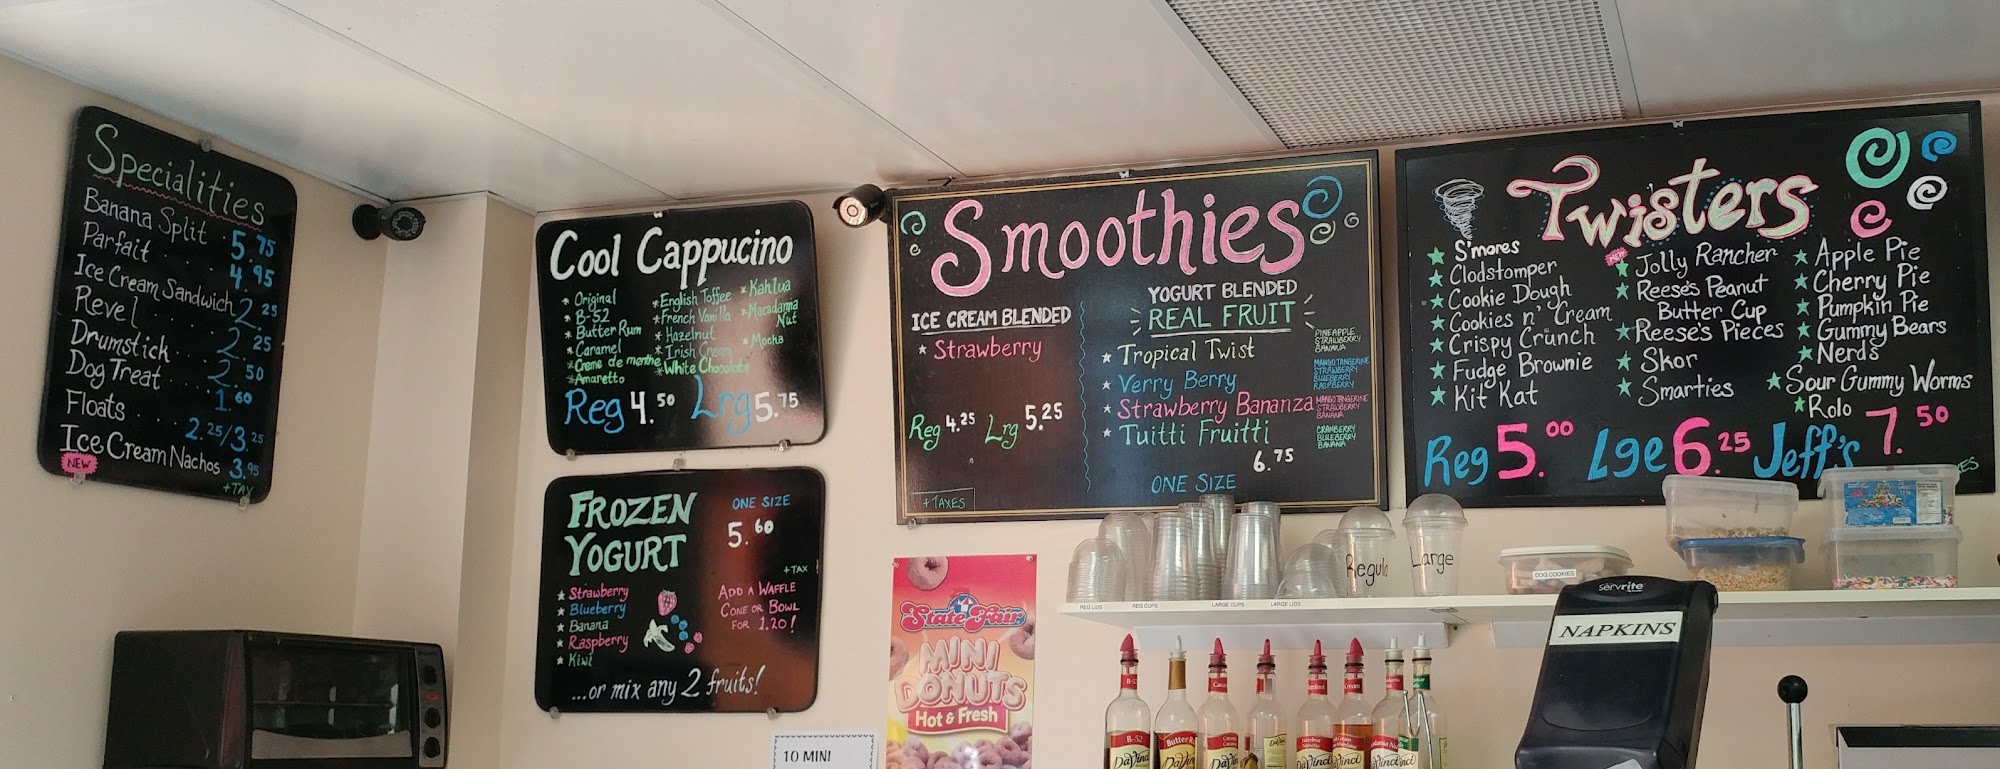 Specialities
Banana Split . 5.75
Parfait . . . . . 4.95
Ice Cream Sandwich 2.25
Revel . . . . . . 2.25
Drumstick . . . 2.50
Dog Treat . . . . 1.60
Floats . . . 2.25/3.25
Ice Cream Nachos 3.95
NEW
+TAX
Cool Cappucino
* Original
* B-52
* Butter Rum
* Caramel
* Creme de menthe
* Amaretto
* English Toffee
* French Vanilla
* Hazelnut
* Irish Cream
* White Chocolate
* Kahlua
* Macadamia
Nut
* Mocha
Reg 4.50 Lrg 5.75
FROZEN
YOGURT
ONE SIZE
5.60
+TAX
★ Strawberry
★ Blueberry
★ Banana
★ Raspberry
★ Kiwi
ADD A WAFFLE
CONE OR BOWL
FOR 1.20!
...or mix any 2 fruits!
Smoothies
ICE CREAM BLENDED
★ Strawberry
Reg 4.25 Lrg 5.25
+TAXES
YOGURT BLENDED
REAL FRUIT
★ Tropical Twist
PINEAPPLE
STRAWBERRY
BANANA
★ Verry Berry
MANGO TANGERINE
STRAWBERRY
BLUEBERRY
RASPBERRY
★ Strawberry Bananza
MANGO TANGERINE
STRAWBERRY
BANANA
★ Tuitti Fruitti
CRANBERRY
BLUEBERRY
BANANA
6.75
ONE SIZE
Twisters
★ S'mores
★ Clodstomper
★ Cookie Dough
★ Cookies n' Cream
★ Crispy Crunch
★ Fudge Brownie
★ Kit Kat
NEW
★ Jolly Rancher
★ Reese's Peanut
Butter Cup
★ Reese's Pieces
★ Skor
★ Smarties
★ Apple Pie
★ Cherry Pie
★ Pumpkin Pie
★ Gummy Bears
★ Nerds
★ Sour Gummy Worms
★ Rolo
Reg 5.00 Lge 6.25 Jeff's 7.50
State Fair
MINI
DONUTS
Hot & Fresh
10 MINI
Regula
Large
REG LIDS
REG CUPS
LARGE CUPS
LARGE LIDS
DOG COOKIES
servrite
NAPKINS
B-52
DaVinci
Butter R
DaVinci
DaVinci
DaVinci
Hazelnut
DaVinci
Cream
DaVinci
DaVinci